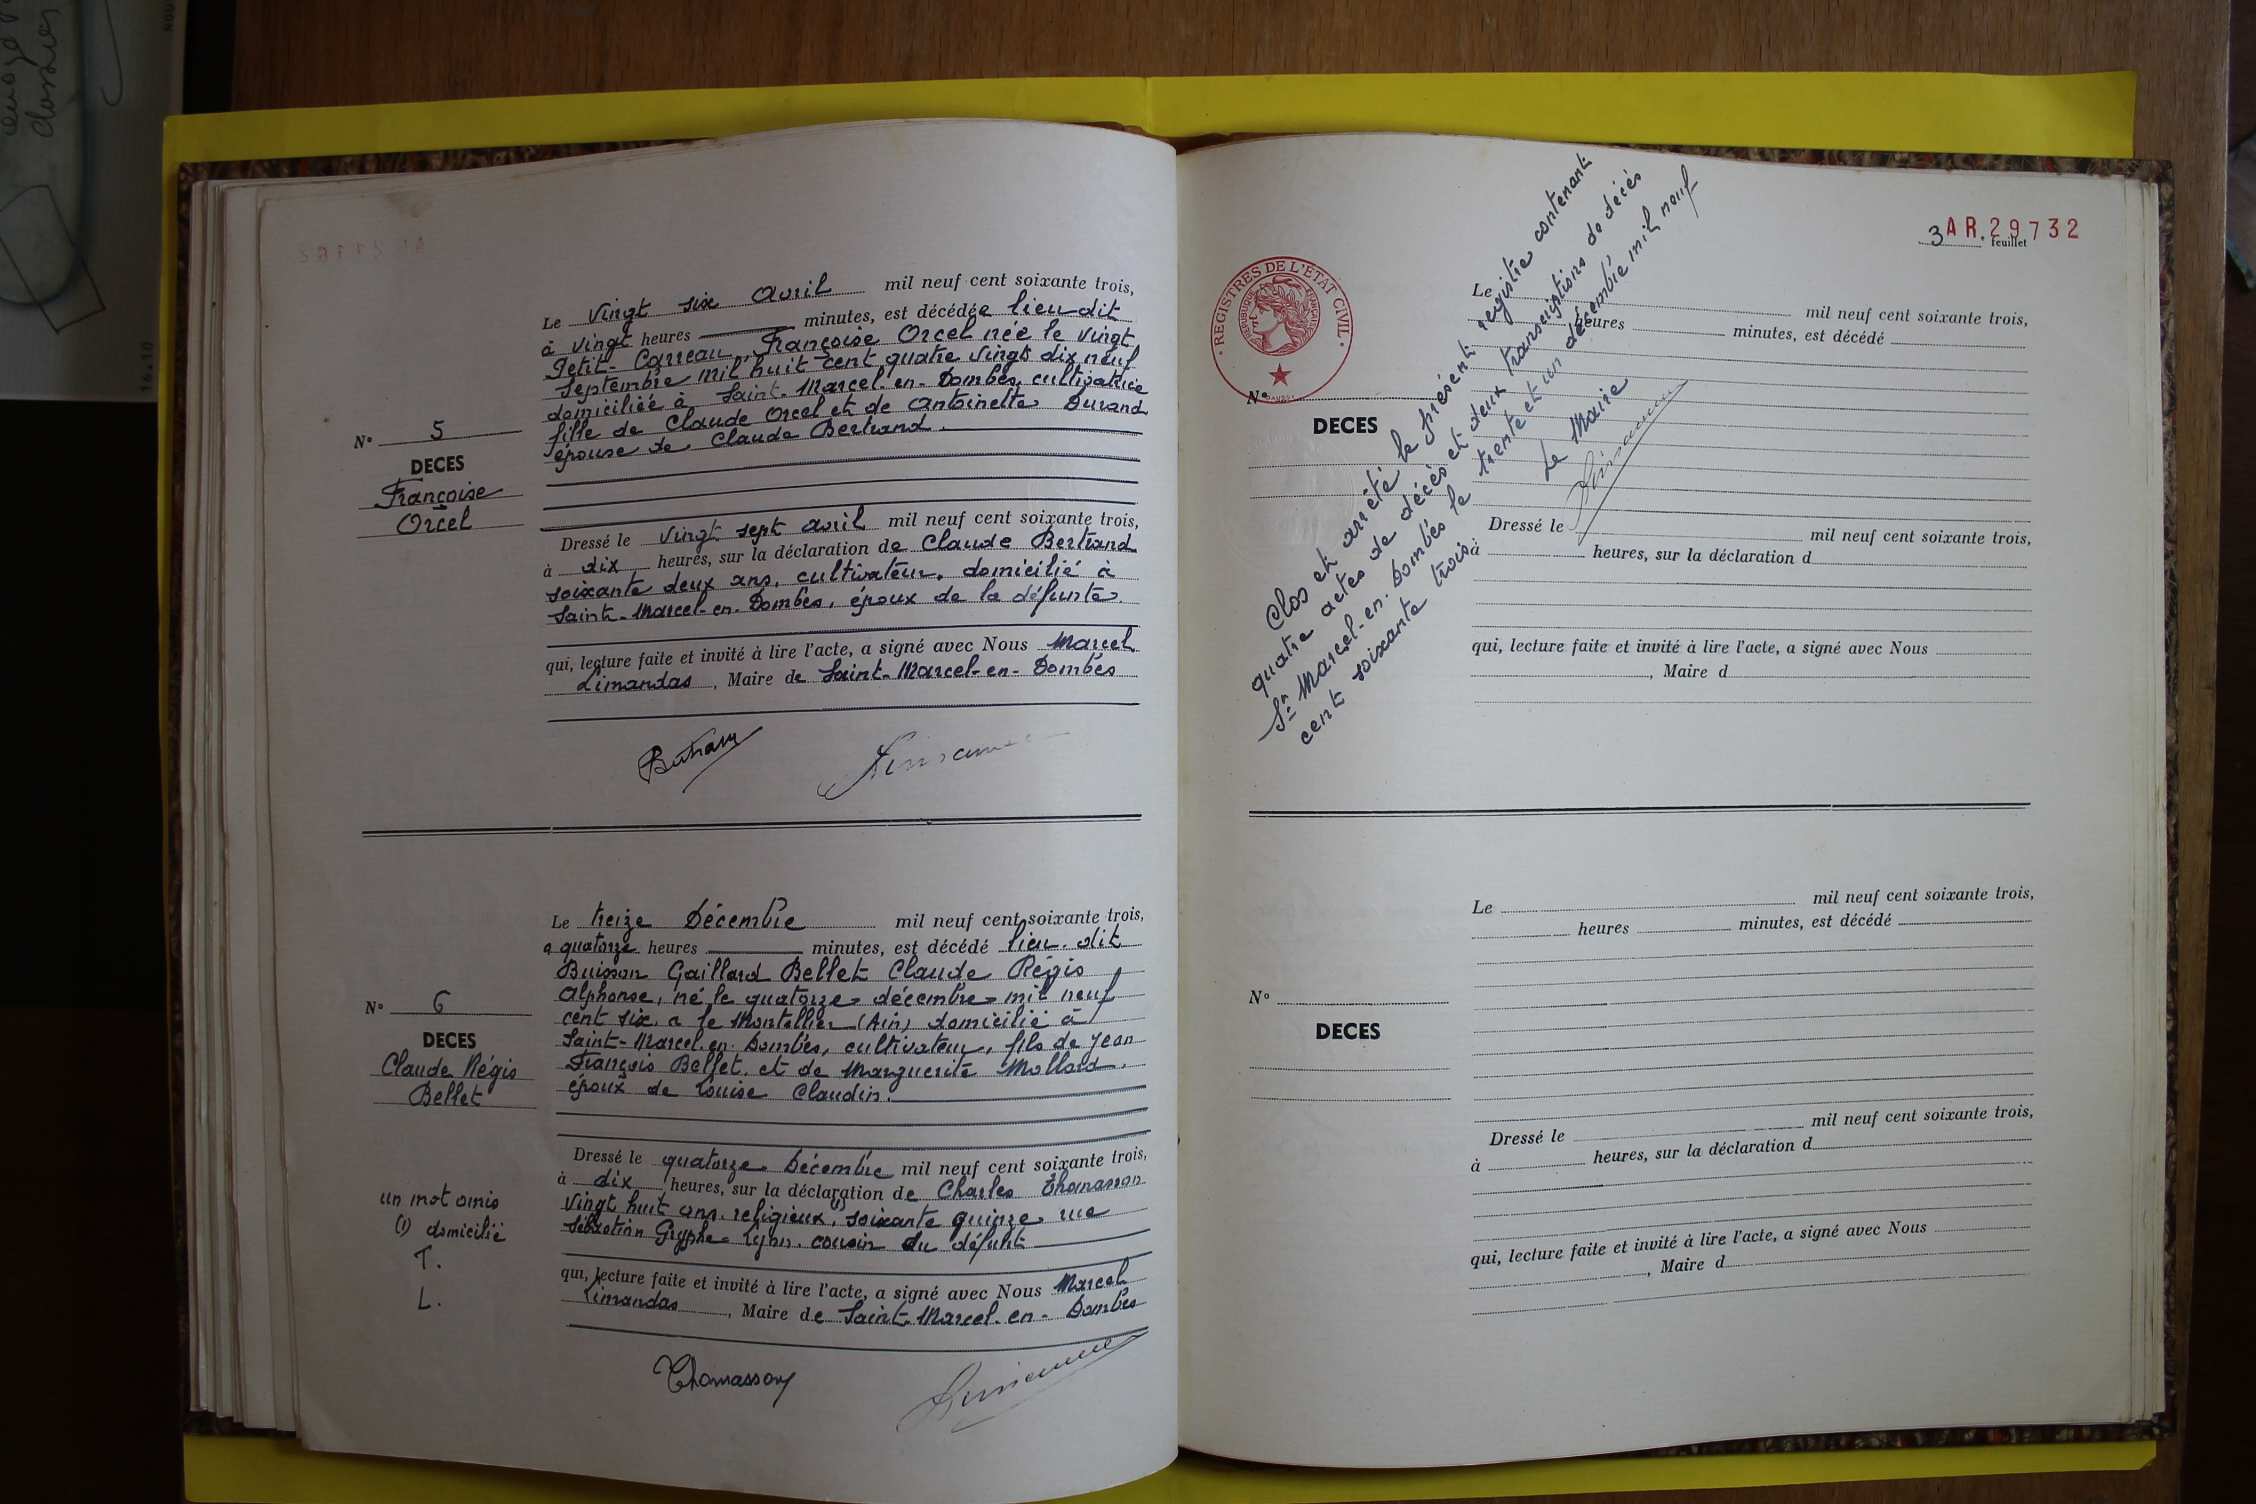 Le vingt six avril mil neuf cent soixante trois,
à vingt heures minutes, est décédée lieu dit
Petit-Carreau, Françoise Orcel née le vingt
septembre mil huit cent quatre vingt dix neuf
domiciliée à Saint-Marcel-en-Dombes, cultivatrice
fille de Claude Orcel et de Antoinette Durand
épouse de Claude Bertrand.
N° 5
DECES
Françoise
Orcel
Dressé le vingt sept avril mil neuf cent soixante trois,
à dix heures, sur la déclaration de Claude Bertrand
soixante deux ans, cultivateur, domicilié à
Saint-Marcel-en-Dombes, époux de la défunte.
qui, lecture faite et invité à lire l'acte, a signé avec Nous Marcel
Limandas, Maire de Saint-Marcel-en-Dombes
Le treize Décembre mil neuf cent soixante trois,
a quatorze heures minutes, est décédé lieu. dit
Buisson Gaillard Bellet Claude Régis
Alphonse, né le quatorze décembre mil neuf
cent six. a le Montellier (Ain) domicilié à
Saint-Marcel.en.Dombes, cultivateur, fils de Jean
François Bellet. et de Marguerite Mollard.
époux de Louise Claudin.
N° 6
DECES
Claude Régis
Bellet
Dressé le quatorze Décembre mil neuf cent soixante trois,
à dix heures, sur la déclaration de Charles Thomasson
vingt huit ans. religieux, (1) soixante quinze rue
Sébastien Gryphe Lyon. cousin du défunt
un mot omis
(1) domicilié
T.
L.
qui, lecture faite et invité à lire l'acte, a signé avec Nous Marcel
Limandas, Maire de Saint-Marcel-en-Dombes
Thomasson
3 AR.29732
feuillet
REGISTRES DE L'ETAT CIVIL
REPUBLIQUE FRANÇAISE
Clos et arrêté le présent registre contenant
quatre actes de décès et deux transcriptions de décès
St Marcel-en-Dombes le trente et un décembre mil neuf
cent soixante trois.
Le Maire
Le mil neuf cent soixante trois,
heures minutes, est décédé
N°
DECES
Dressé le mil neuf cent soixante trois,
à heures, sur la déclaration d
qui, lecture faite et invité à lire l'acte, a signé avec Nous
, Maire d
Le mil neuf cent soixante trois,
heures minutes, est décédé
N°
DECES
Dressé le mil neuf cent soixante trois,
à heures, sur la déclaration d
qui, lecture faite et invité à lire l'acte, a signé avec Nous
, Maire d